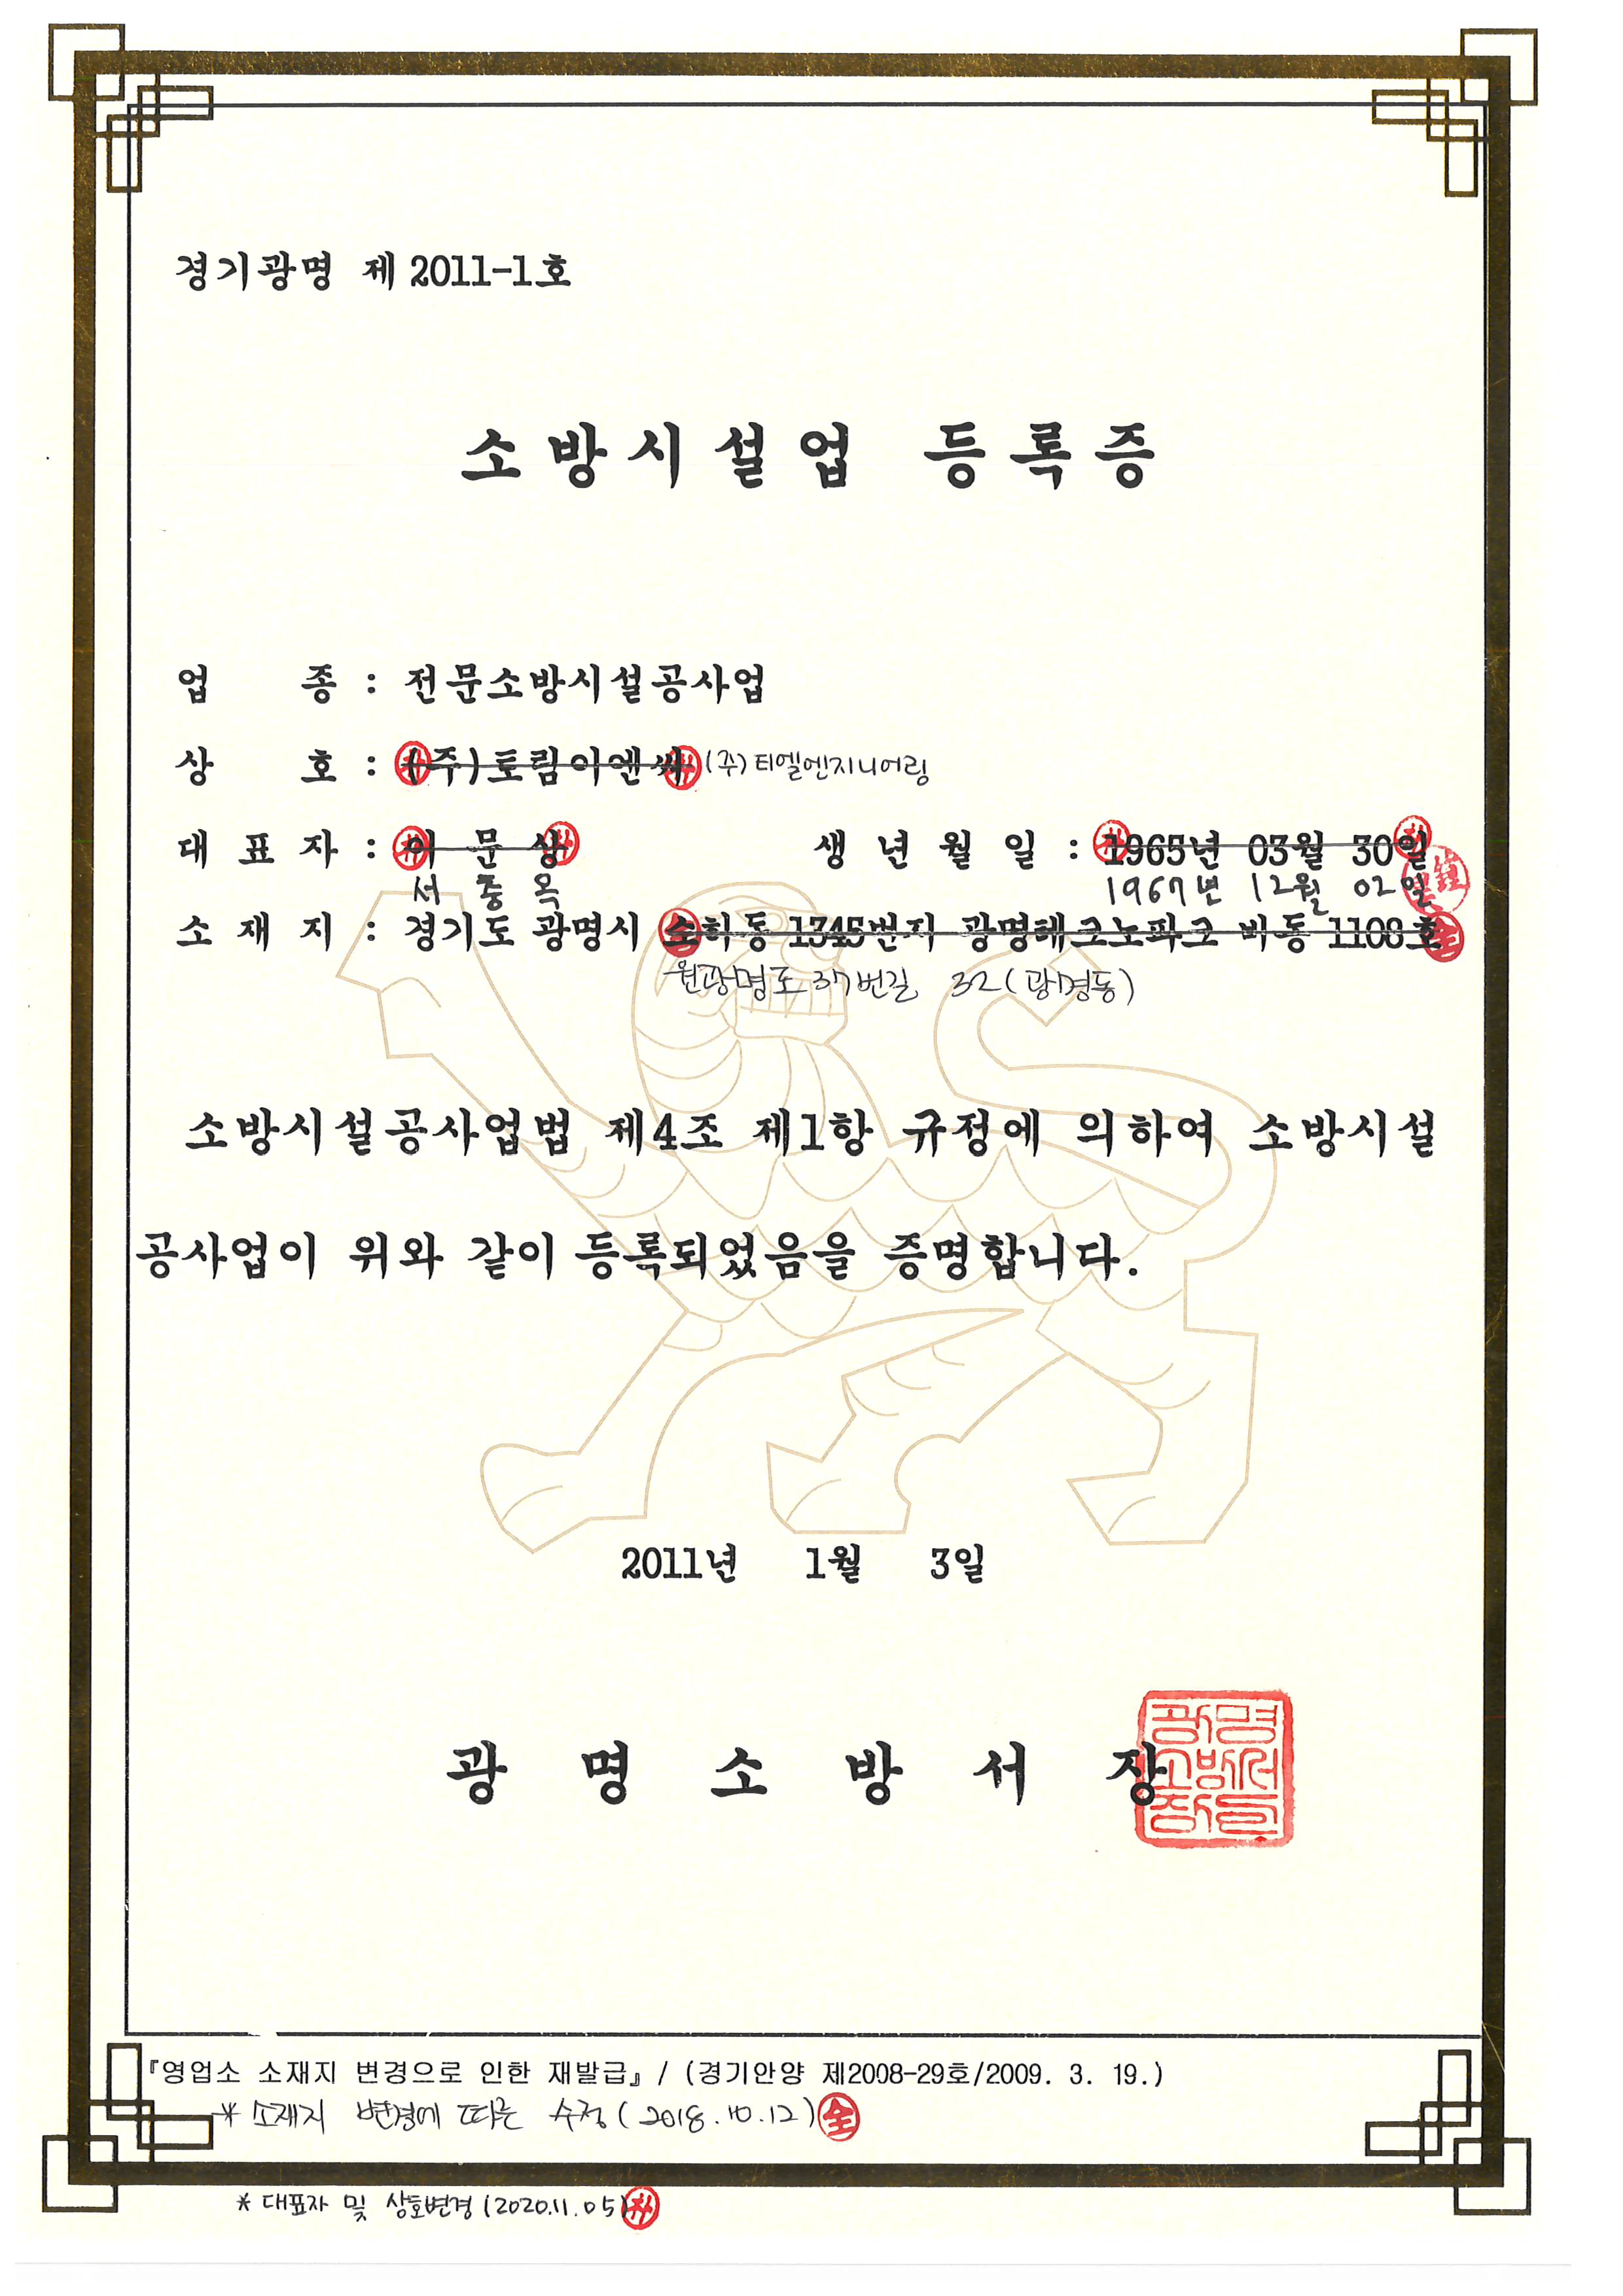 경기광명 제 2011-1호
소방시설업 등록증
업 종 : 전문소방시설공사업
상 호 : (주)토림이엔씨 (주)티엘엔지니어링
대 표 자 : 이 문 상 생 년 월 일 : 1965년 03월 30일
서 종 옥 1967년 12월 02일
소 재 지 : 경기도 광명시 소하동 1345번지 광명테크노파크 비동 1108호
원광명로37번길 32(광명동)
소방시설공사업법 제4조 제1항 규정에 의하여 소방시설
공사업이 위와 같이 등록되었음을 증명합니다.
2011년 1월 3일
광 명 소 방 서 장
광명소방서장
『영업소 소재지 변경으로 인한 재발급』 / (경기안양 제2008-29호/2009. 3. 19.)
* 소재지 변경에 따른 수정 (2018.10.12) 全
* 대표자 및 상호변경 (2020.11.05) 朴